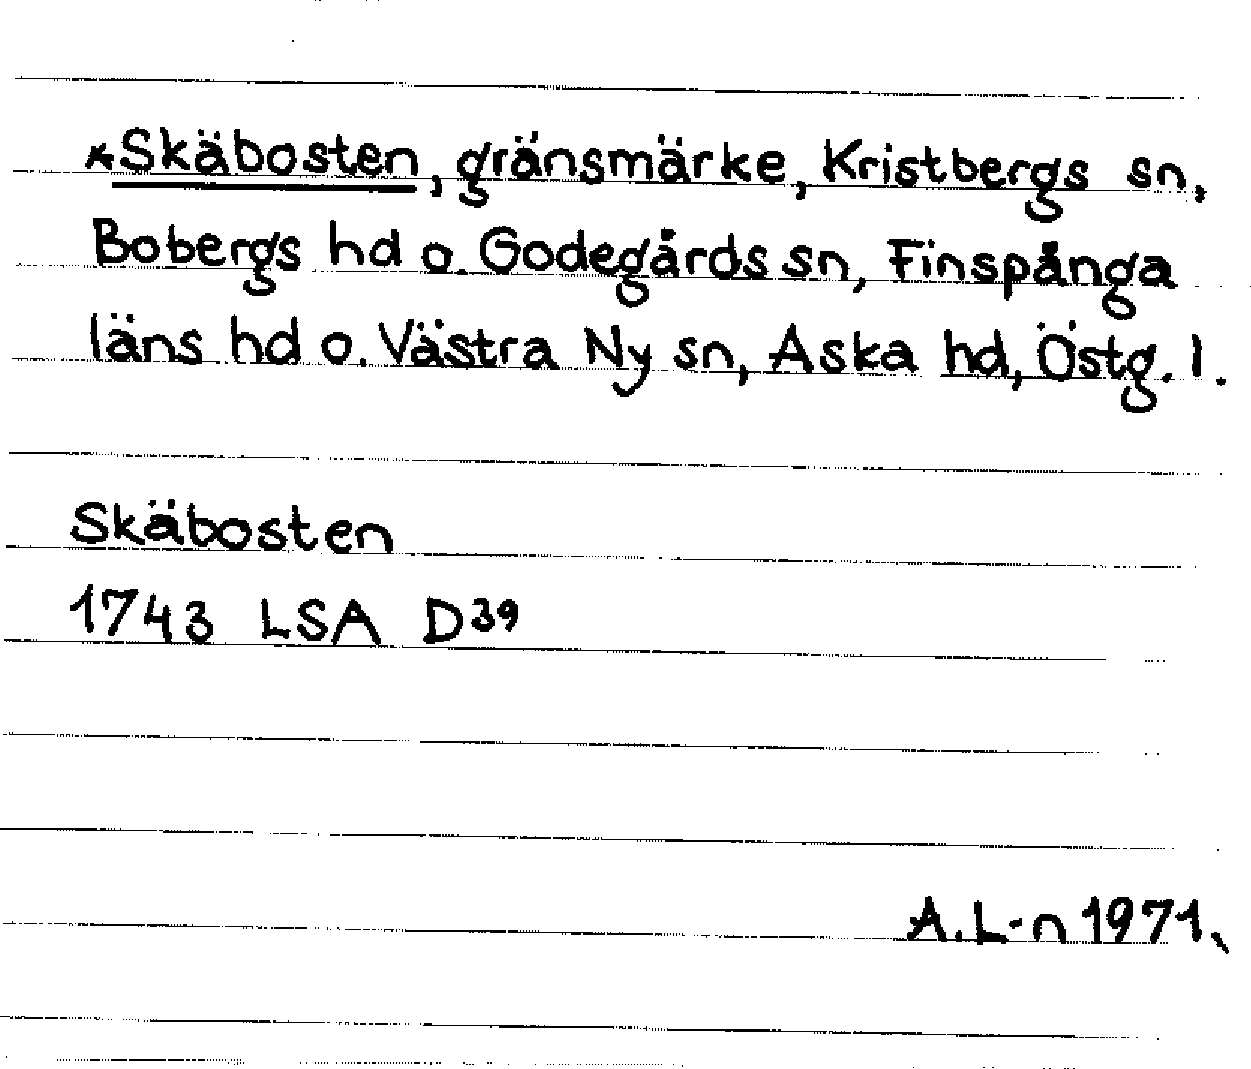 *Skäbosten, gränsmärke, Kristbergs sn,
Bobergs hd o. Godegårds sn, Finspånga
läns hd o. Västra Ny sn, Aska hd, Östg. l.
Skäbosten
1743 LSA D39
A.L-n 1971.